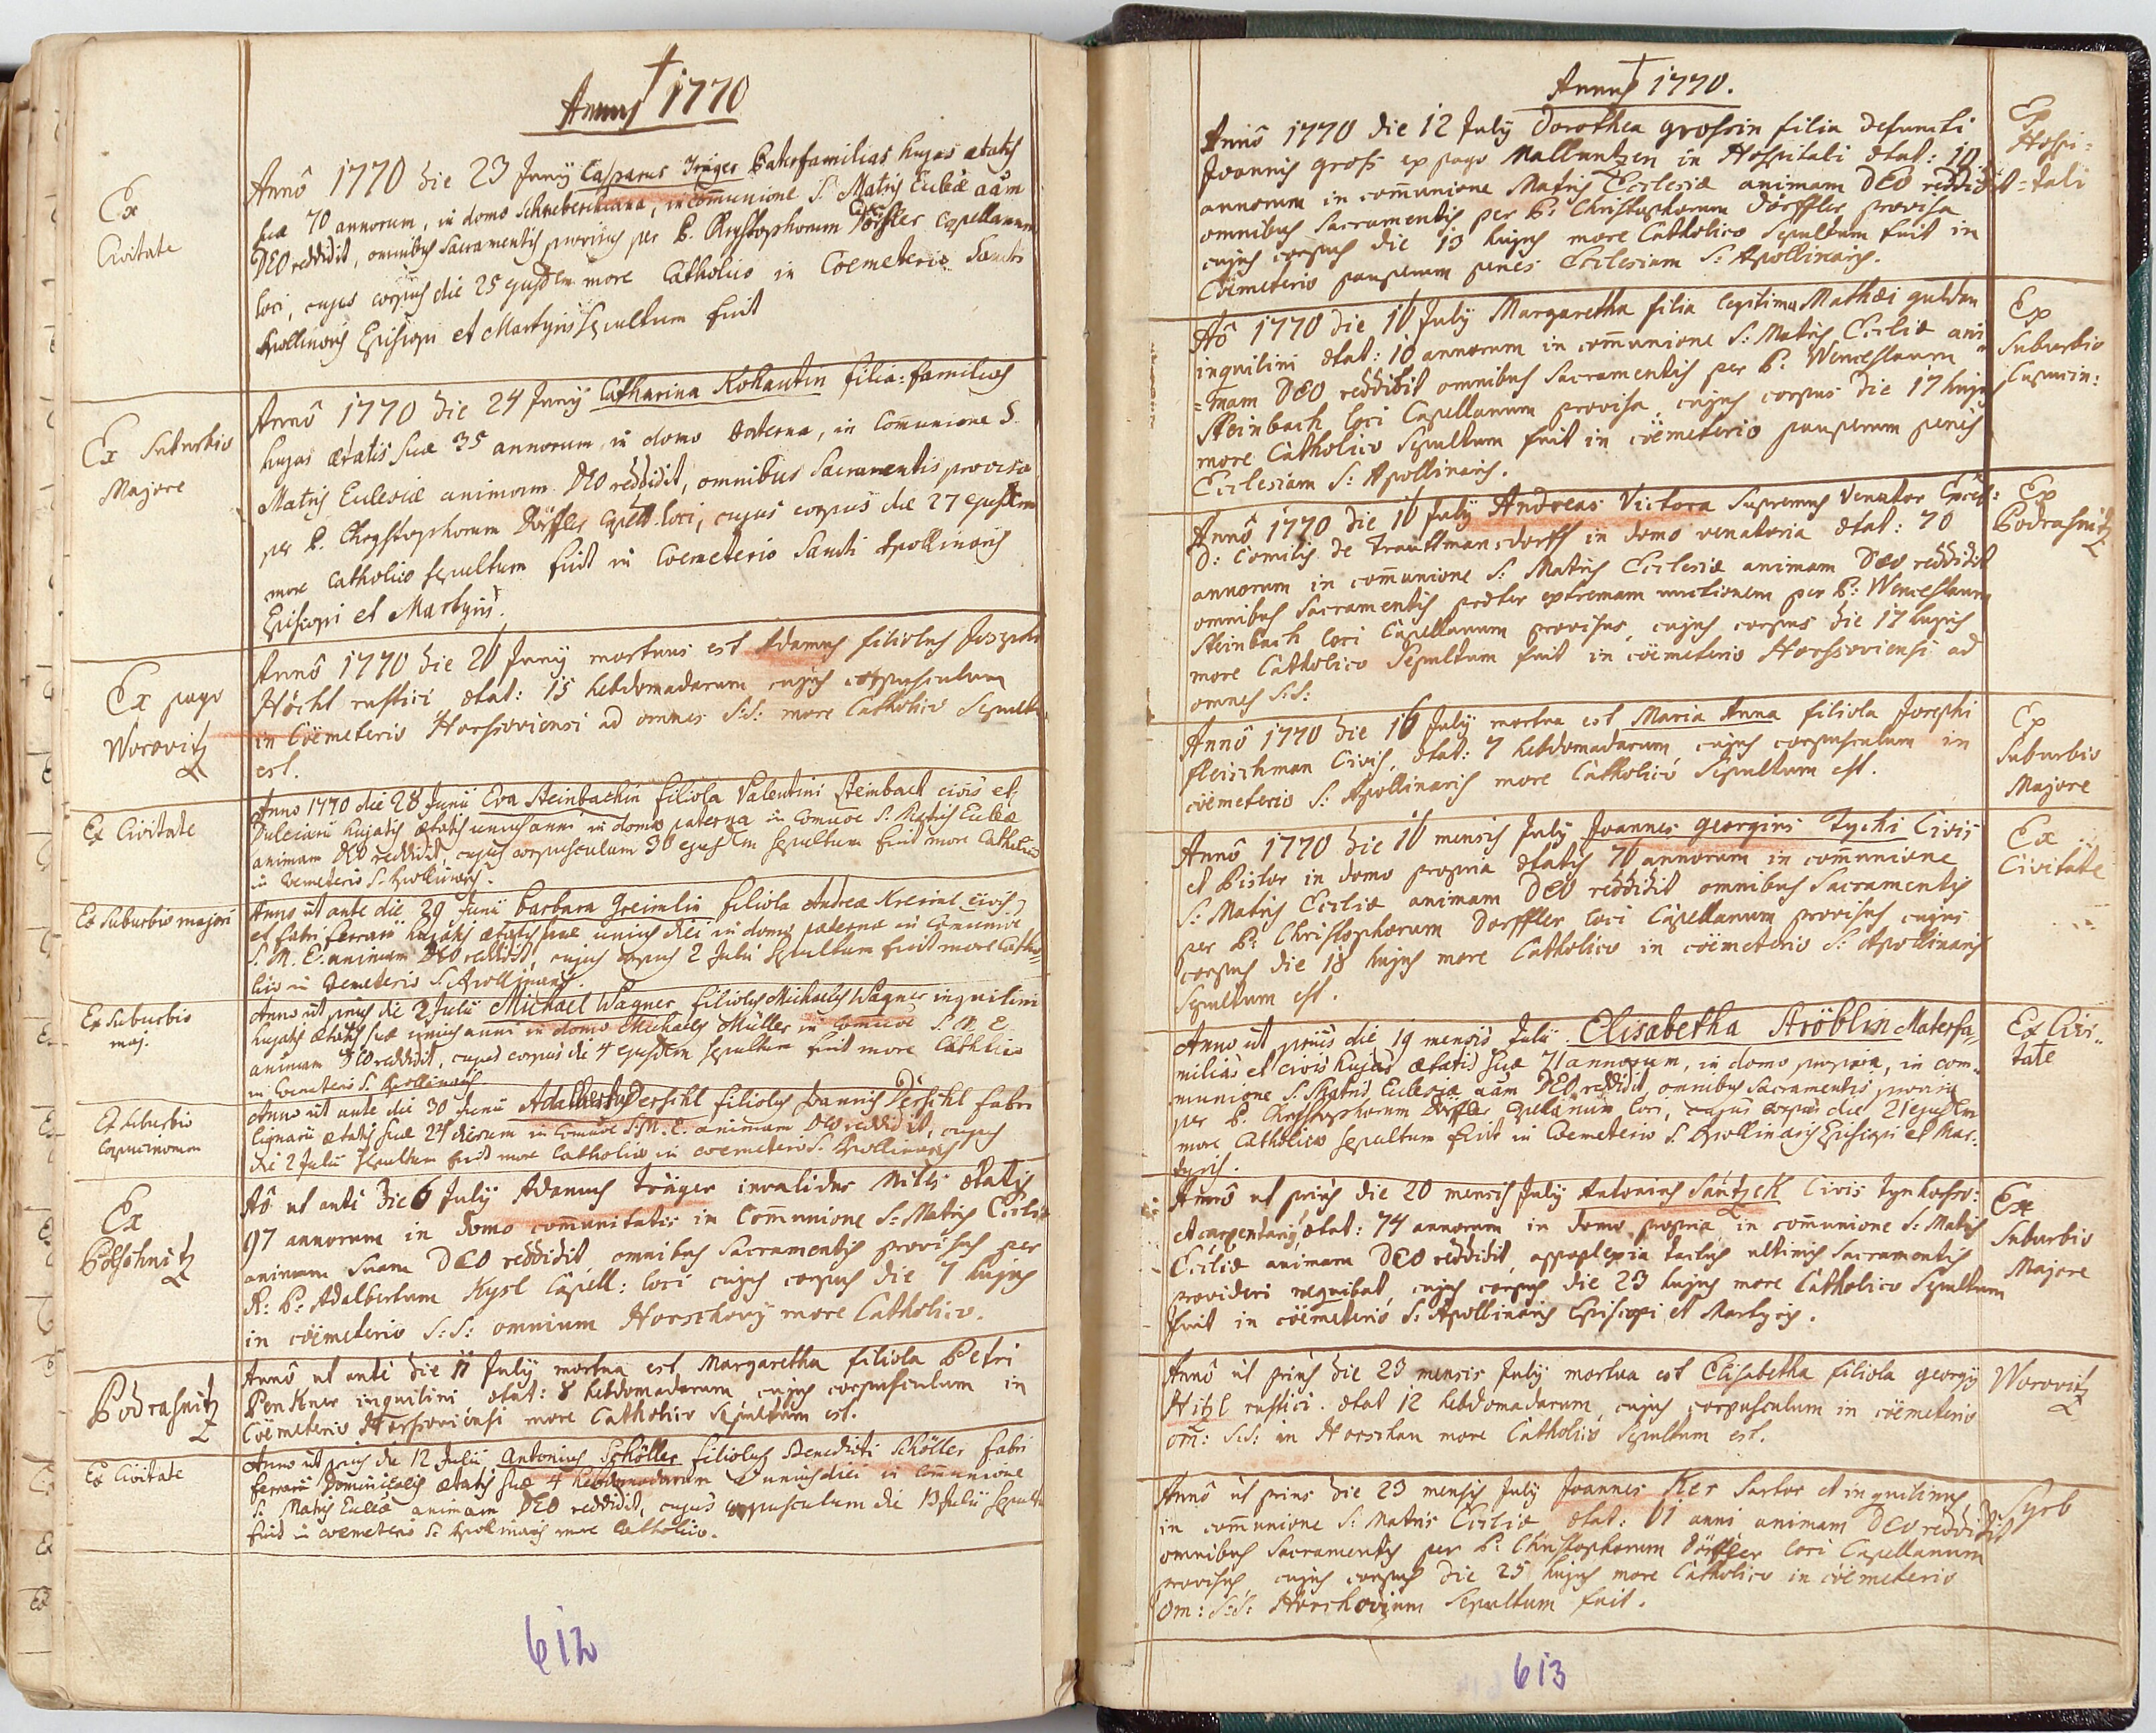 Annus 1770
Ex
Civitate
Annô 1770 die 23 Junij Casparus Träger Paterfamilias hujas ætatis
suæ 70 annorum, in domo Schneberiana, in communione S. Matris Ecclæ aãm
DEO reddidit, omnibus Sacramentis provisus per P. Chrystophorum Dörffler Capellanum
loci, cujus corpus die 25 ejusdem more Catholico in Coemeterio Sancti
Apollinaris Episcopi et Martyris sepultum fuit
Ex Suburbio
Majore
Annô 1770 die 24 Junij Catharina Kohautin filia-familias
hujas ætatis suæ 35 annorum in domo paterna, in Communione S.
Matris Ecclesiæ animam DEO reddidit, omnibus Sacramentis provisa
per P. Chrystophorum Dörffler Capell. loci, cujus corpus die 27 ejusdem
more Catholico sepultum fuit in Coemeterio Sancti Apollinaris
Episcopi et Martyris.
Ex pago
Worovitz
Annô 1770 die 26 Junij mortuus est Adamus filiolus Josephi
Höchl rustici ætat: 15 hebdomadarum cujus corpusculum
in Cöemeterio Horssoviensi ad omnes S:S: more Catholico Sepultu
est.
Ex Civitate
Anno 1770 die 28 Junii Eva Steinbachin filiola Valentini Steinbach civis et
Dulciarii hujatis ætatis unius anni in domo paterna in Comuõe S. Matris Ecclæ
animam DEO reddidit, cujus corpusculum 30 ejusdem sepultum fuit more Catholico
in coemeterio S. Apollinaris.
Ex Suburbio majori
Anno ut ante die 29 Junii Barbara Greimlin filiola Andreæ Kreiml civis
et fabri ferrarii hujatis ætatis suæ unius diei in domo paterna in Comunioe
S. M. E. animam DEO reddidit, cujus corpus 2 Julii sepultum fuit more Catho-
lico in Cemeterio S. Apollinaris.
Ex Suburbio
maj.
Anno ut prius die 2 Julii Michael Wagner filiolus Michaelis Wagner inquilini
hujatis ætatis suæ unius anni in domo Michaelis Müller in Comuoe S. M. E.
animam DEO reddidit, cujus corpus die 4 ejusdem sepultum fuit more Catholico
in Cemeterio S. Apollinaris
Ex Suburbio
Capucinorum
Anno ut ante die 30 Junii Adalbertus Derschl filiolus Joannis Derschl fabri
lignarii ætatis suæ 24 dierum in Comuoe S. M. E. animam DEO reddidit, cujus
die 2 Julii sepultum fuit more Catholico in coemeterio S. Apollinaris
Ex
Potschnitz
Aõ ut ante die 6 Julij Adamus Träger invalidus Miles ætatis
97 annorum in domo communitatis in Communione S: Matris Ecclæ
animam suam DEO reddidit omnibus Sacramentis provisus per
R: P: Adalbertum Kysl Capell: loci cujus corpus die 7 hujus
in cöemeterio S:S: omnium Horschovij more Catholico.
Podrasnitz
Annô ut ante die 11 Julij mortua est Margaretha filiola Petri
Penkner inquilini ætat: 8 hebdomadarum cujus corpusculum in
Cöemeterio Horssoviensi more Catholico Sepultum est.
Ex Civitate
Anno ut prius die 12 Julii Antonius Schöller filiolus Benedicti Schöller fabri
ferrarii Dominicalis ætatis suæ 4 hebdomadarum & unius diei in Communione
S. Matris Ecclæ animam DEO reddidit, cujus corpusculum die 13 Julii sepultu
fuit in coemeterio S. Apollinaris more Catholico.
612
Annus 1770.
Annô 1770 die 12 Julij Dorothea Grossin filia defuncti
Joannis Gross ex pago Malluntzen in Hospitali ætat: 10
annorum in communione Matris Ecclesiæ animam DEO reddidit
omnibus Sacramentis per P: Christophorum Dörffler provisa
cujus corpus die 13 hujus more Catholico Sepultum fuit in
Cöemeterio pauperum penes Ecclesiam S: Apollinaris.
Ex
Hospi=
=tali
Aõ 1770 die 16 Julij Margaretha filia legitima Mathæi Guldan
inquilini ætat: 10 annorum in communione S: Matris Ecclæ ani=
=mam DEO reddidit omnibus Sacramentis per P: Wenceslaum
Steinbach loci Capellanum provisa, cujus corpus die 17 hujus
more Catholico Sepultum fuit in cöemeterio pauperum penes
Ecclesiam S: Apollinaris.
Ex
Suburbio
Capucin:
Annô 1770 die 16 Julij Andreas Victora Supremus Venator Excel:
D: Comitis de Trauttmansdorff in domo venatoria ætat: 70
annorum in communione S: Matris Ecclesiæ animam DEO reddidit
omnibus Sacramentis præter extremam unctionem per P: Wenceslaum
Steinbach loci Capellanum provisus, cujus corpus die 17 hujus
more Catholico Sepultum fuit in cöemeterio Horssoviensi ad
omnes S:S:
Ex
Podrasnitz
Annô 1770 die 16 Julij mortua est Maria Anna filiola Josephi
Fleischman Civis, ætat: 7 hebdomadarum cujus corpusculum in
cöemeterio S: Apollinaris more Catholico Sepultum est.
Ex
Suburbio
Majore
Annô 1770 die 16 mensis Julij Joannes Georgius Tychi Civis
et Pistor in domo propria ætatis 76 annorum in communione
S: Matris Ecclæ animam DEO reddidit omnibus Sacramentis
per P: Christophorum Dorffler loci Capellanum provisus cujus
corpus die 18 hujus more Catholico in cöemeterio S: Apollinaris
Sepultum est.
Ex
Civitate
Anno ut prius die 19 mensis Julii Elisabetha Ströblin Materfa-
milias et civis hujas ætatis suæ 71 annorum, in domo propria, in com-
munione S. Matris Ecclesiæ aãm DEO reddidit, omnibus Sacramentis provisa
per P. Chrystophorum Dörffler Capellanum loci, cujus corpus die 21 ejusdem
more Catholico sepultum fuit in Coemeterio S. Apollinaris Episcopi et Mar-
tyris.
Ex Civi-
tate
Annô ut prius die 20 mensis Julij Antonius Säntzek Civis Tynhorsso:
et carpentarij ætat: 74 annorum in domo propria in communione S: Matris
Ecclæ animam DEO reddidit, appoplexia tactus ultimis Sacramentis
provideri nequibat, cujus corpus die 23 hujus more Catholico Sepultum
fuit in cöemeterio S: Apollinaris Episcopi et Martyris.
Ex
Suburbio
Majore
Annô ut prius die 23 mensis Julij mortua est Elisabetha filiola Georgij
Hitzl rustici. ætat 12 hebdomadarum, cujus corpusculum in cöemeterio
om: S:S: in Horschau more Catholico Sepultum est.
Worovitz
Annô ut prius die 23 mensis Julij Joannes Ker Sartor et inquilinus
in communione S: Matris Ecclæ ætat: 61 anni animam DEO reddidit
omnibus Sacramentis per P: Christophorum Dörffler loci Capellanum
provisus cujus corpus die 25 hujus more Catholico in cöemeterio
om: S:S: Horschovium Sepultum fuit.
Syrb
613